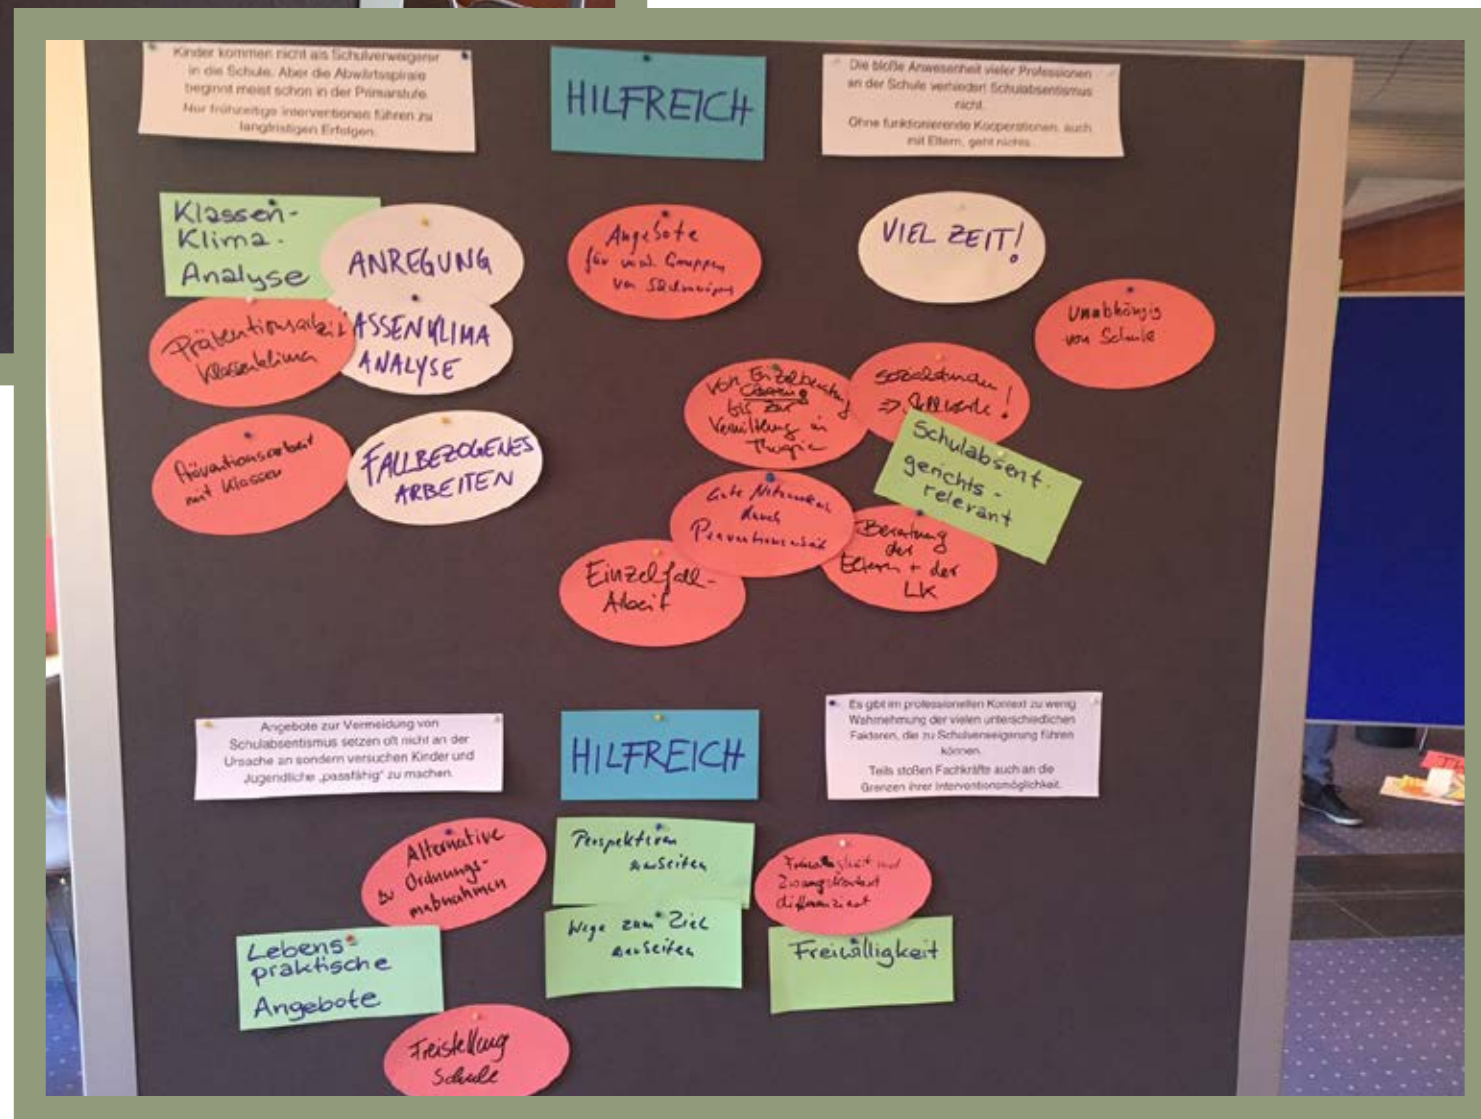 Kinder kommen nicht als Schulverweigerer
in die Schule. Aber die Abwärtsspirale
beginnt meist schon in der Primarstufe.
Nur frühzeitige Interventionen führen zu
langfristigen Erfolgen.
HILFREICH
Die bloße Anwesenheit vieler Professionen
an der Schule verhindert Schulabsentismus
nicht.
Ohne funktionierende Kooperationen, auch
mit Eltern, geht nichts.
Klassen-
Klima-
Analyse
ANREGUNG
Präventionsarbeit
Klassenklima
ASSENKLIMA
ANALYSE
Präventionsarbeit
mit Klassen
FALLBEZOGENES
ARBEITEN
Angebote
für Gruppen
von
VIEL ZEIT!
Unabhängig
von Schule
Von Einzelberatung
bis zur
Vermittlung in
Schulabsent.
gerichts-
relevant
Gute
durch
Präventionsarbeit
Beratung
der
Eltern + der
LK
Einzelfall-
Arbeit
Angebote zur Vermeidung von
Schulabsentismus setzen oft nicht an der
Ursache an sondern versuchen Kinder und
Jugendliche „passfähig“ zu machen.
HILFREICH
Es gibt im professionellen Kontext zu wenig
Wahrnehmung der vielen unterschiedlichen
Faktoren, die zu Schulverweigerung führen
können.
Teils stoßen Fachkräfte auch an die
Grenzen ihrer Interventionsmöglichkeit.
Alternative
zu Ordnungs-
maßnahmen
Perspektiven
Wege zum Ziel
Freiwilligkeit und
Zwangskontext
differenziert
Freiwilligkeit
Lebens-
praktische
Angebote
Freistellung
Schule